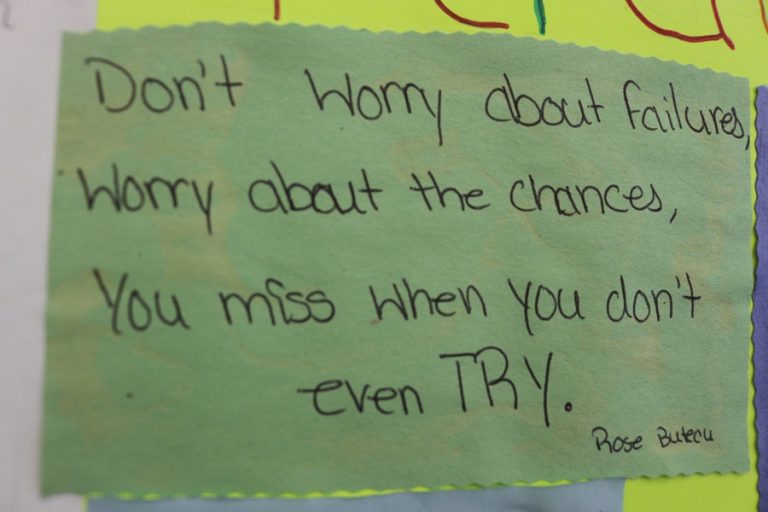 Don't Worry about failures,
Worry about the chances,
You miss when you don't
even TRY.
Rose Butecu